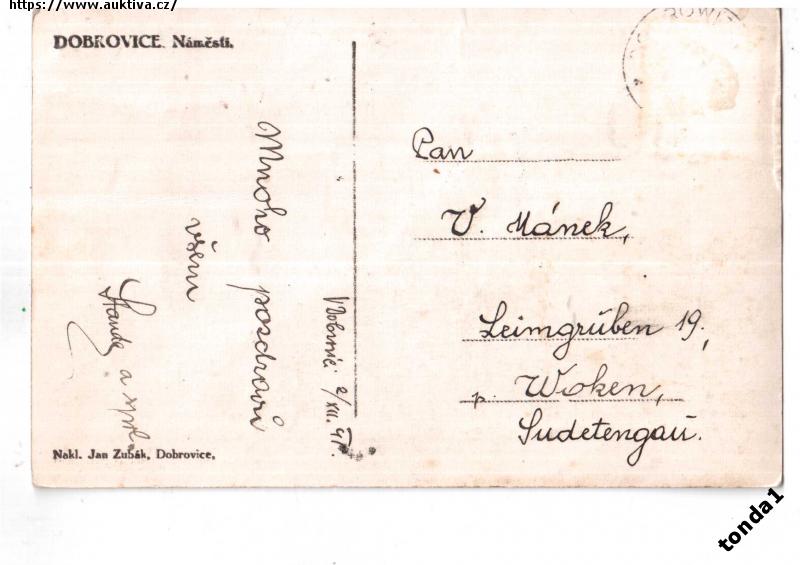 https://www.auktiva.cz/
DOBROVICE. Náměstí.
Mnoho pozdravů
všem
Standa a
2/XII. 41.
Pan
V. Mánek,
Leimgrüben 19,
p. Woken,
Sudetengau.
Nakl. Jan Zubák, Dobrovice,
tonda1